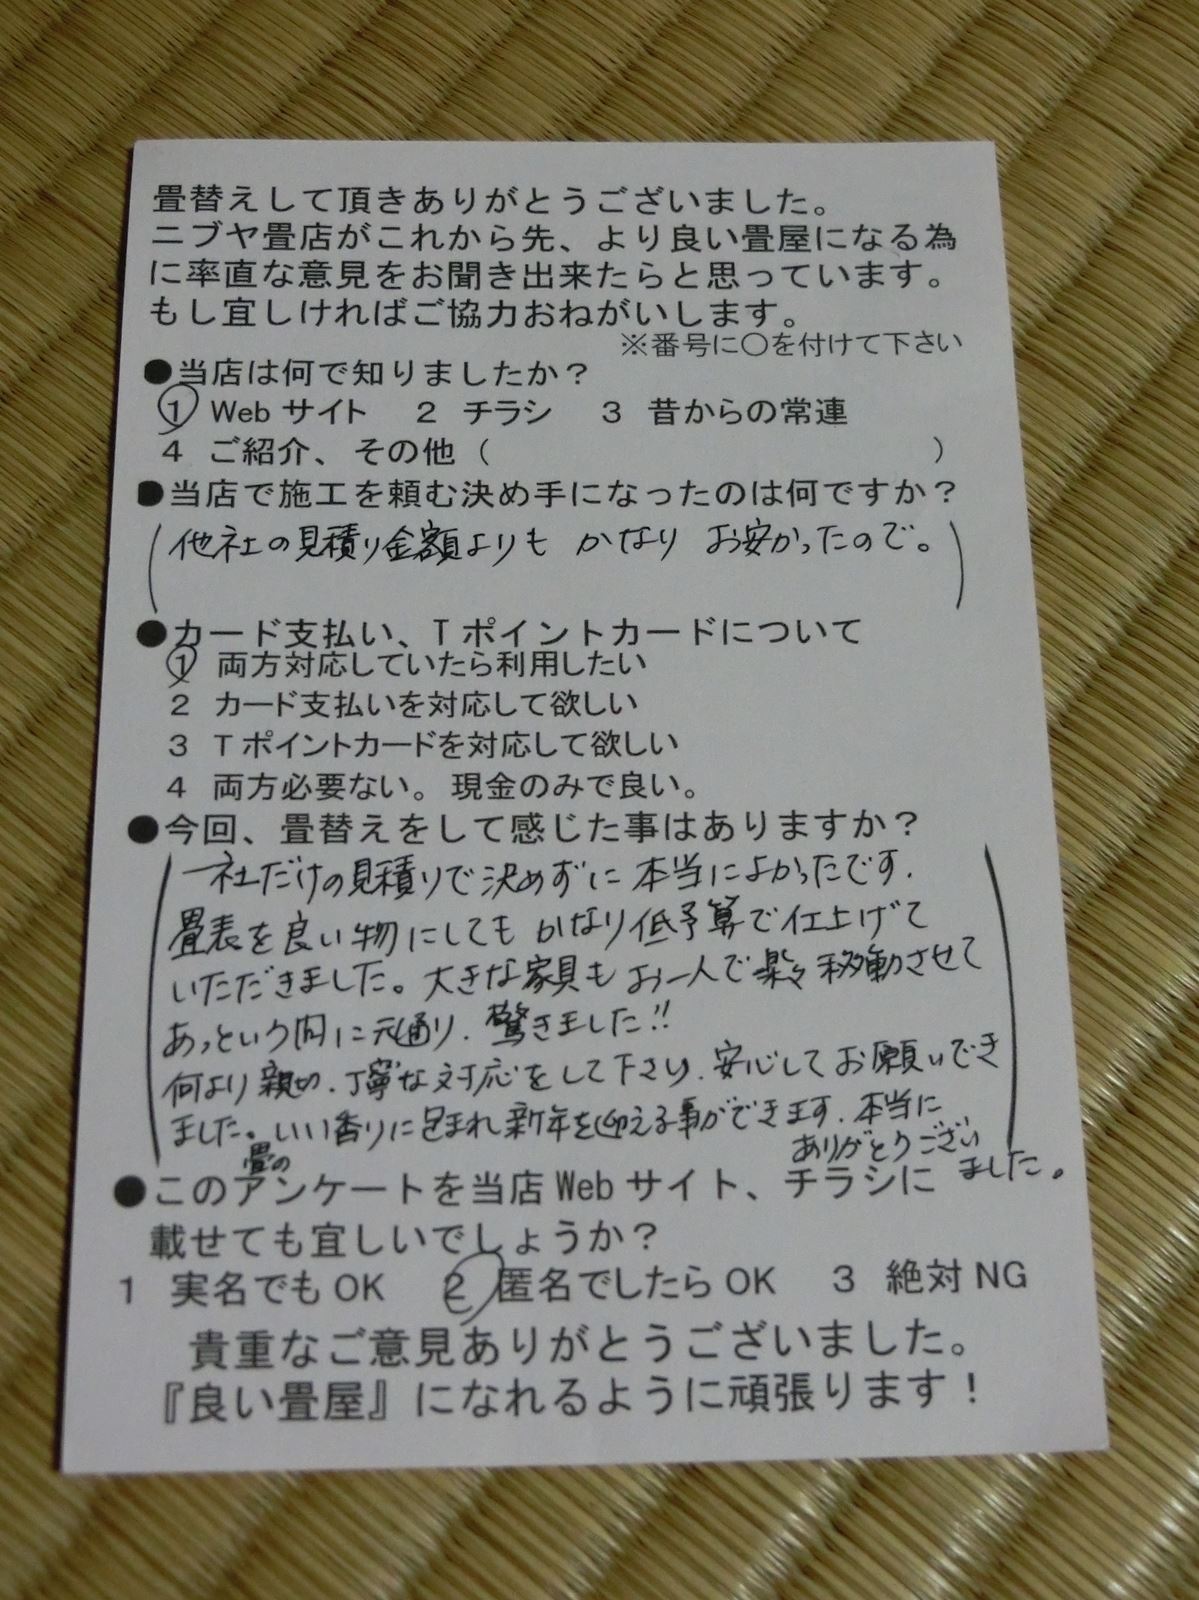 畳替えして頂きありがとうございました。
ニブヤ畳店がこれから先、より良い畳屋になる為
に率直な意見をお聞き出来たらと思っています。
もし宜しければご協力おねがいします。
※番号に○を付けて下さい
●当店は何で知りましたか?
1 Webサイト 2 チラシ 3 昔からの常連
4 ご紹介、その他( )
●当店で施工を頼む決め手になったのは何ですか?
(他社の見積り金額よりも かなり お安かったので。)
●カード支払い、Tポイントカードについて
1 両方対応していたら利用したい
2 カード支払いを対応して欲しい
3 Tポイントカードを対応して欲しい
4 両方必要ない。現金のみで良い。
●今回、畳替えをして感じた事はありますか?
一社だけの見積りで決めずに 本当によかったです.
畳表を良い物にしても かなり低予算で仕上げて
いただきました。大きな家具も お一人で楽々移動させて
あっという間に元通り. 驚きました!!
何より親切.丁寧な対応をして下さり.安心してお願いでき
ました。いい香りに包まれ新年を迎える事ができます.本当に
畳の
ありがとうござい
ました。
●このアンケートを当店Webサイト、チラシに
載せても宜しいでしょうか?
1 実名でもOK 2 匿名でしたらOK 3 絶対NG
貴重なご意見ありがとうございました。
『良い畳屋』になれるように頑張ります!